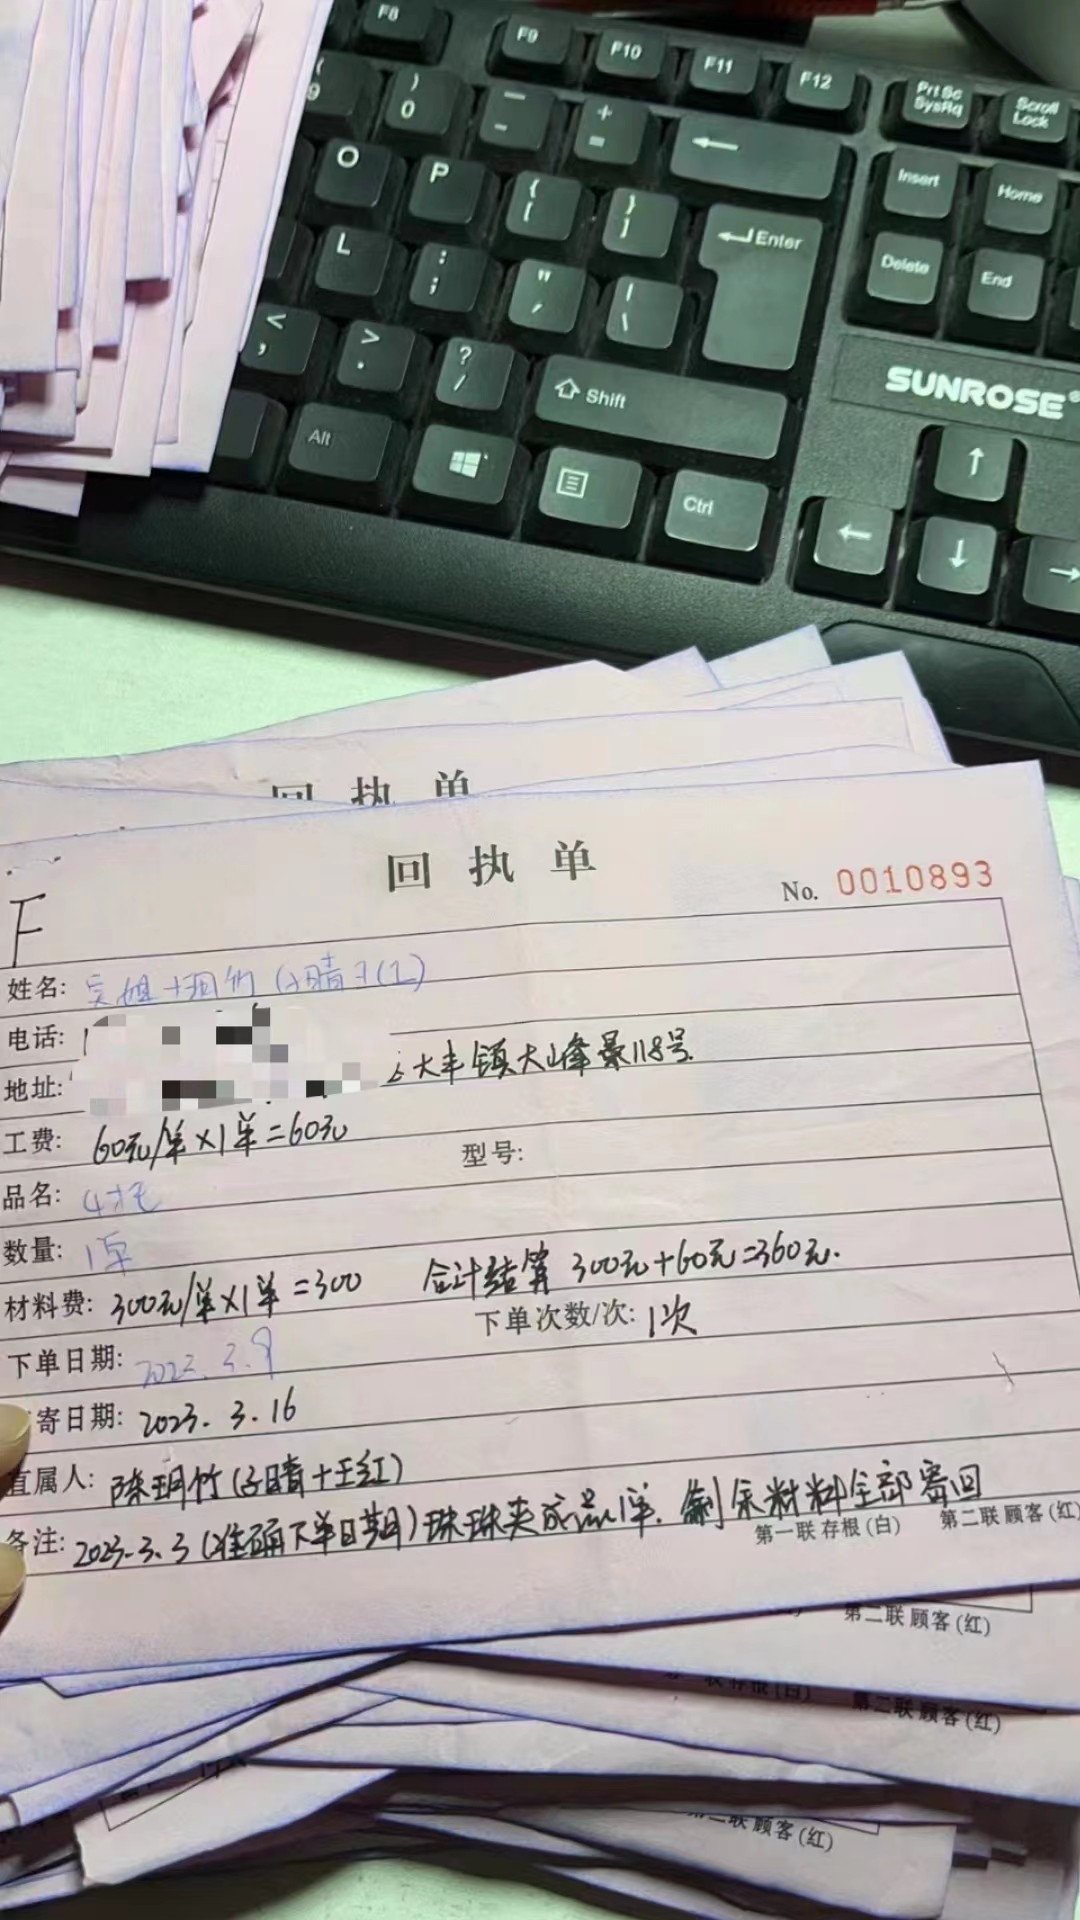 F8 F9 F10 F11 F12 Prt Sc SysRq Scroll Lock
( 9 ) 0 — - + = Insert Home
O P { [ } ] Enter Delete End
L : ; " ' | \
< , > . ? / Shift
SUNROSE
Alt Ctrl
回执单
回执单
No. 0010893
F
姓名:
电话:
地址: 大丰镇大山峰景118号
工费: 60元/单×1单=60元
型号:
品名:
数量: 1单
材料费: 300元/单×1单=300 合计结算 300元+60元=360元.
下单次数/次: 1次
下单日期: 2023.3.9
寄日期: 2023.3.16
直属人: 陈玥竹(子晴+王红)
备注: 2023.3.3(准确下单日期)珠珠夹成品1单.剩余材料全部寄回
第一联 存根(白) 第二联 顾客(红)
第二联 顾客(红)
联 存根(白) 第二联 顾客(红)
第二联 顾客(红)